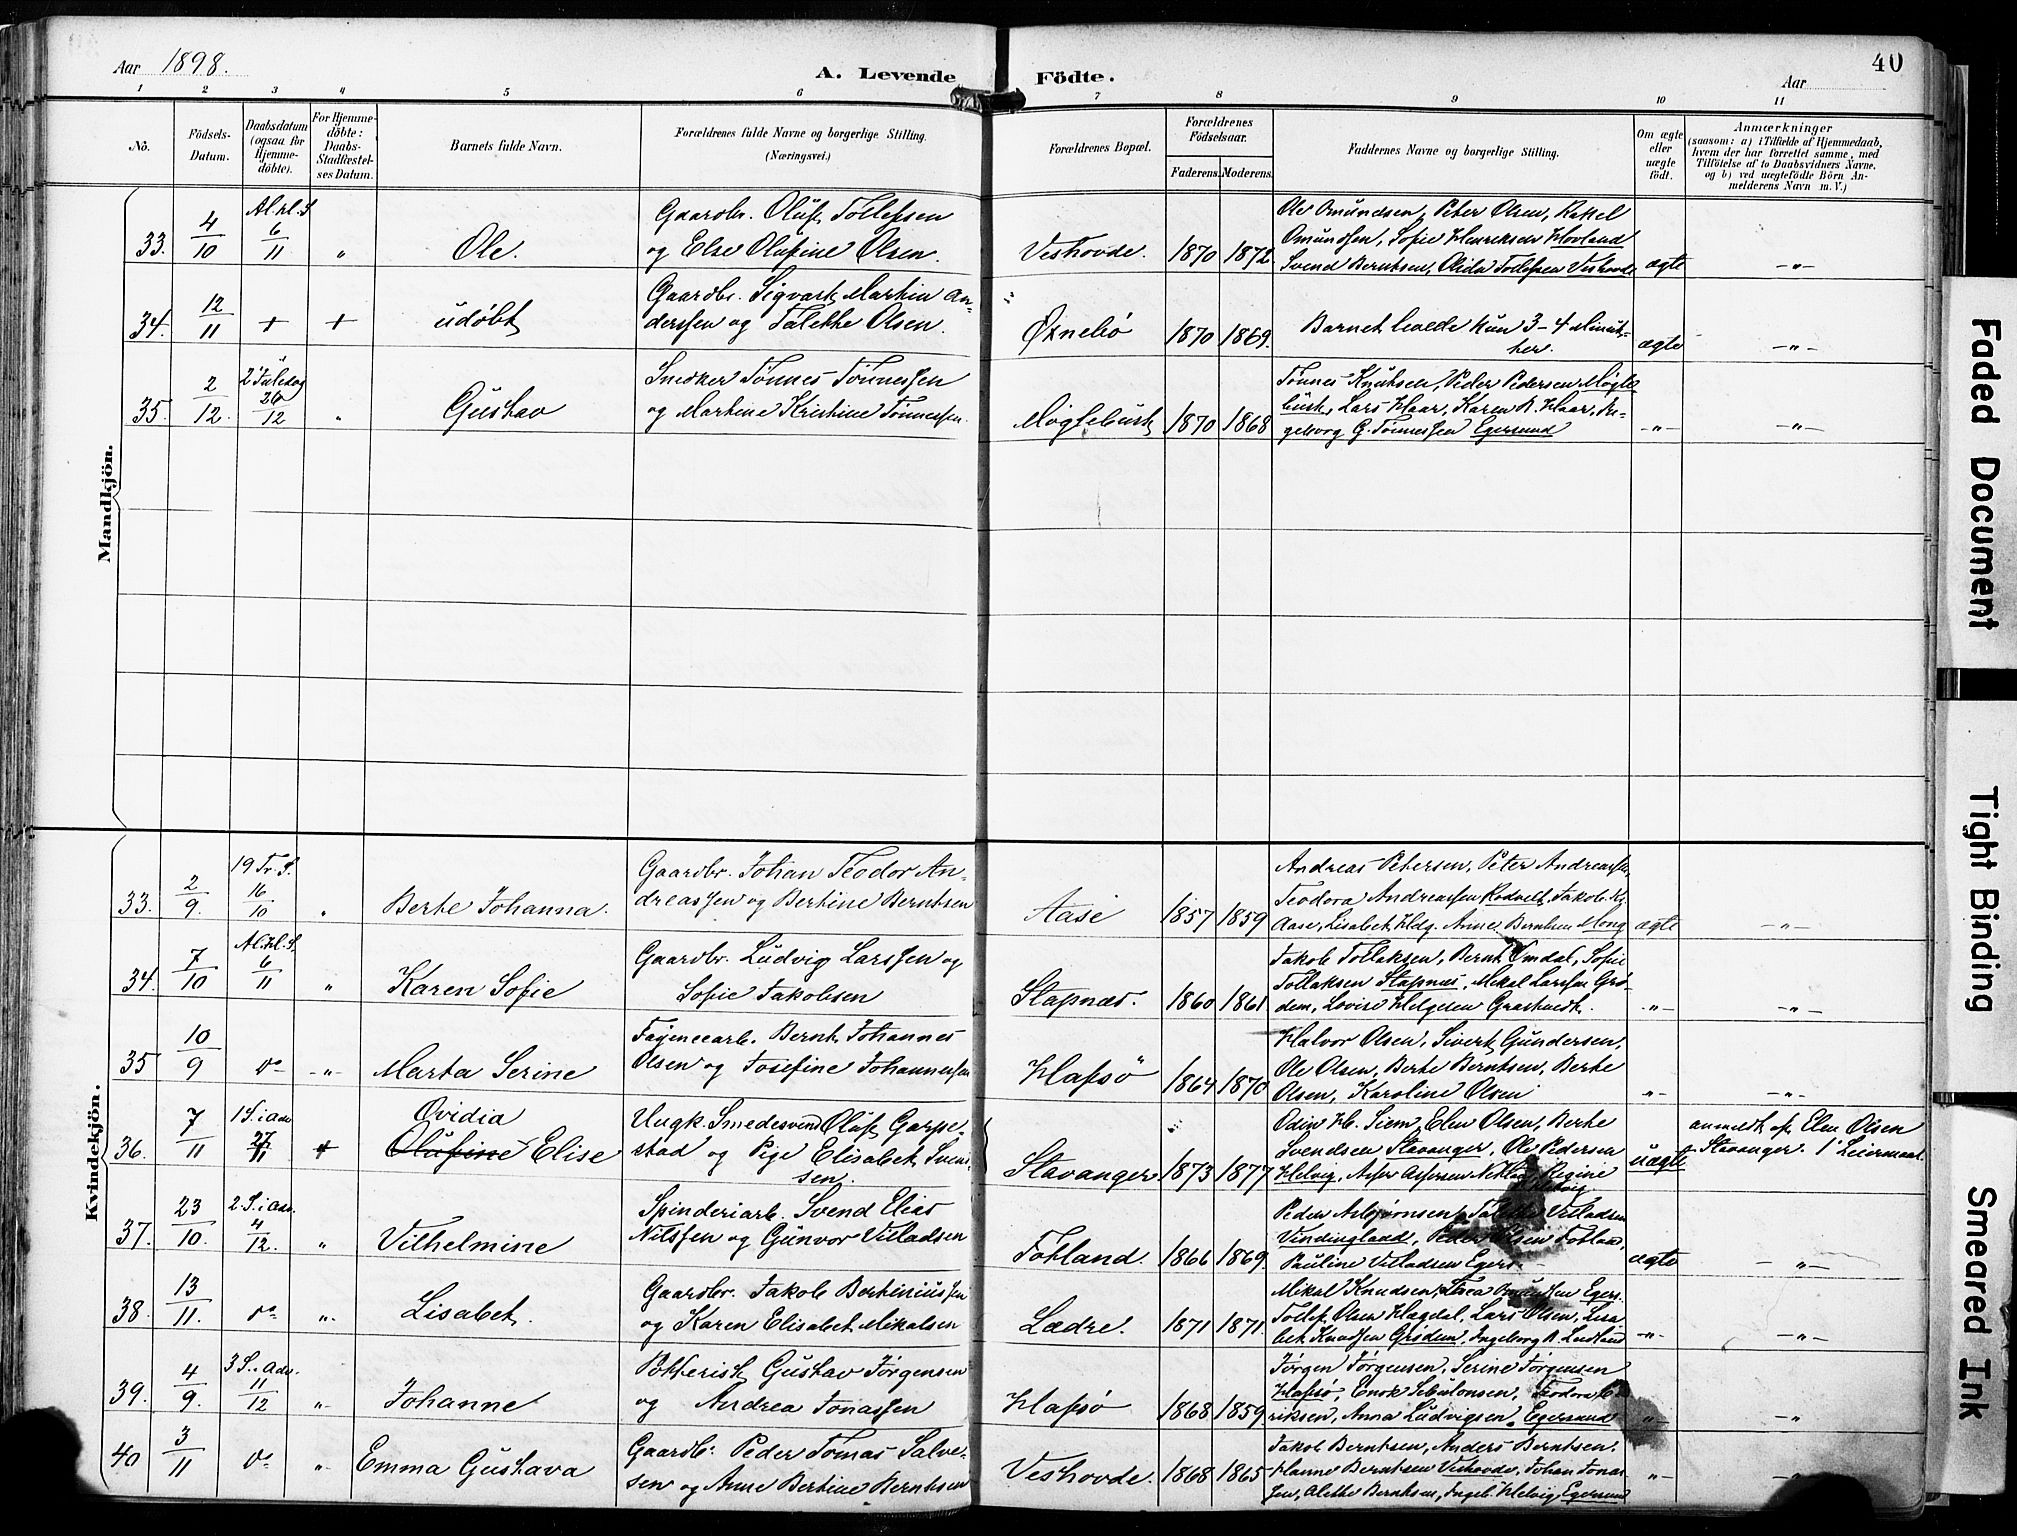 Aar 1898.
A. Levende Födte.
Aar
40
1 2 3 4 5 6 7 8 9 10 11
No.
Födsels-Datum.
Daabsdatum (ogsaa for Hjemme-döbte).
For Hjemme-döbte: Daabs-Stadfæstel-ses Datum.
Barnets fulde Navn.
Forældrenes fulde Navne og borgerlige Stilling.
(Næringsvei.)
Forældrenes Bopæl.
Forældrenes Födselsaar.
Faderens. Moderens.
Faddernes Navne og borgerlige Stilling.
Om ægte eller uægte födt.
Anmærkninger
(saasom: a) i Tilfælde af Hjemmedaab,
hvem der har forrettet samme, med
Tilföielse af to Daabsvidners Navne.
og b) ved uægtefödte Börn An-
melderens Navn m. V.)
Mandkjön.
33. 4/10 Al.hl.S 6/11 " Ole.
Gaardbr. Oluf Tollefsen
og Else Olufine Olsen.
Veshovde. 1870 1872.
Ole Omundsen, Peter Olsen, Rakel
Omundsen, Sofie Henriksen Hovland
Svend Berntsen, Olida Tollefsen Veshovde
ægte -"-
34. 12/11 + + udøbt
Gaardbr. Sigvart Martin An-
derssen og Talette Olsen.
Øxnebø 1870 1869.
Barnet levede kun 3-4 Minut-
ter.
ægte -"-
35. 2/12. 2 Juledag 26/12 " Gustav
Snedker Tønnes Tønnessen
og Martine Kristine Tønnessen.
Møglebust 1870 1868
Tønnes Knutsen, Peder Pedersen Møgle
bust, Lars Haar, Karen R. Haar, In-
geborg G. Tønnessen Egersund
-"- -"-
Kvindekjön.
33. 2/9. 19 Tr. S. 16/10 " Berte Johanna.
Gaardbr. Johan Teodor An-
dreassen og Bertine Berntsen
Aase 1857 1859
Andreas Petersen, Peter Andreassen
Teodora Andreassen Rodvelt, Jakob
Aase, Lisabet Hdg. Anne Berntsen Mong
ægte -"-
34. 7/10 Al.hl.S. 6/11 " Karen Sofie
Gaardbr. Ludvig Larssen og
Sofie Jakobsen
Stapnæs. 1860 1861.
Jakob Tollaksen, Bernt Omdal, Sofie
Tollaksen Stapnes, Mikal Larssen Grø-
dem, Lovise Helgesen
-"- -"-
35 10/9 do -"- Marta Serine
Fayencearb. Bernt Johannes
Olsen og Josefine Johannessen
Hafsö 1864 1870
Halvor Olsen, Sivert Gundersen,
Ole Olsen, Berte Berntsen, Berte
Olsen, Karoline Olsen
-"- -"-
36. 7/11 1 S. i Adv 27/11 + Ovidia
Olufine Elise
Ungk. Smedesvend Oluf Garpe-
stad og Pige Elisabet Svens-
sen.
Stavanger 1873 1877
Odin H. Siem, Elen Olsen, Berte
Svendsen Stavanger, Ole Pedersen
Helvig, Asser Assersen Netland, Regine
Helvig
uægte anmeldt af Elen Olsen
Stavanger. 1' Leiermaal.
37. 23/10. 2. S. i Adv. 4/12. " Vilhelmine
Spinderiarb. Svend Elias
Nilssen og Gunvor Villadsen
Fotland. 1866 1869.
Peder Asbjørnsen, Talette Villadsen
Vindingland, Peder Olsen Fotland,
Pauline Villadsen Egers.
ægte -"-
38. 13/11. do ". Lisabet.
Gaardbr. Jakob Bertiniussen
og Karen Elisabet Mikalsen
Lædre. 1871 1871.
Mikal Knudsen, Egers.
Tollef Olsen Hagdal, Lars Olsen, Lisa
bet Knudsen Grødem, Ingeborg B. Ledland
-"- -"-
39. 4/9. 3 S. i Adv. 11/12 " Johanne
Potteriarb. Gustav Jörgensen
og Andrea Jonassen
Hafsø 1868 1859.
Jørgen Jørgensen, Serine Jørgensen
Hafsø, Enok Sebulonsen, Teodora E-
riksen, Anna Ludvigsen, Egersund
-"- -"-
40 3/11 do " Emma Gustava
Gaardb: Peder Tomas Salve-
sen og Anne Bertine Berntsen
Veshovde. 1868 1865
Jakob Berntsen, Anders Berntsen,
Hanne Berntsen Veshovde, Johan Jonas-
sen, Alette Berntsen, Ingeb. Helvig, Egersund
-"- -"-
Faded Document
Tight Binding
Smeared Ink